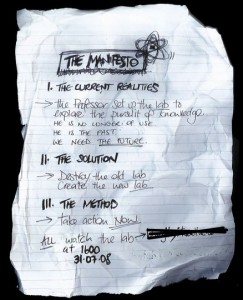 THE MANIFESTO
I. THE CURRENT REALITIES
→ the Professor set up the lab to
explore the pursuit of knowledge.
HE IS NO LONGER OF USE
HE IS THE PAST.
WE NEED THE FUTURE.
II. THE SOLUTION
→ Destroy the old lab
Create the new lab.
III. THE METHOD
→ Take action NOW.
ALL watch the lab →
at 1600
31.07.08